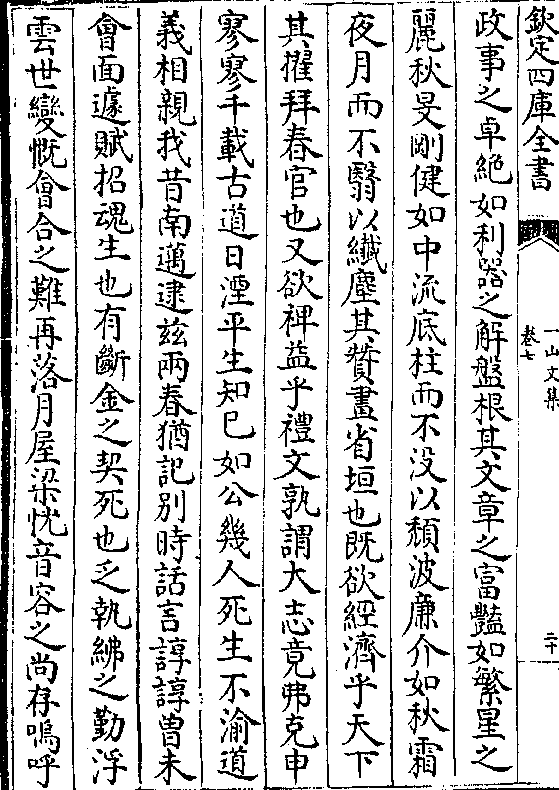 欽定四庫全書
一山文集
卷七
二十
政事之卓絶如利器之解盤根其文章之富豔如繁星之
麗秋旻剛健如中流底柱而不没以頽波廉介如秋霜
夜月而不翳以纖塵其贊畫省垣也既欲經濟乎天下
其擢拜春官也又欲裨益乎禮文孰謂大志竟弗克申
寥寥千載古道日湮平生知已如公幾人死生不渝道
義相親我昔南邁逮兹兩春猶記别時話言諄諄曽未
會面遽賦招魂生也有斷金之契死也乏執紼之勤浮
雲世變慨會合之難再落月屋梁恍音容之尚存嗚呼